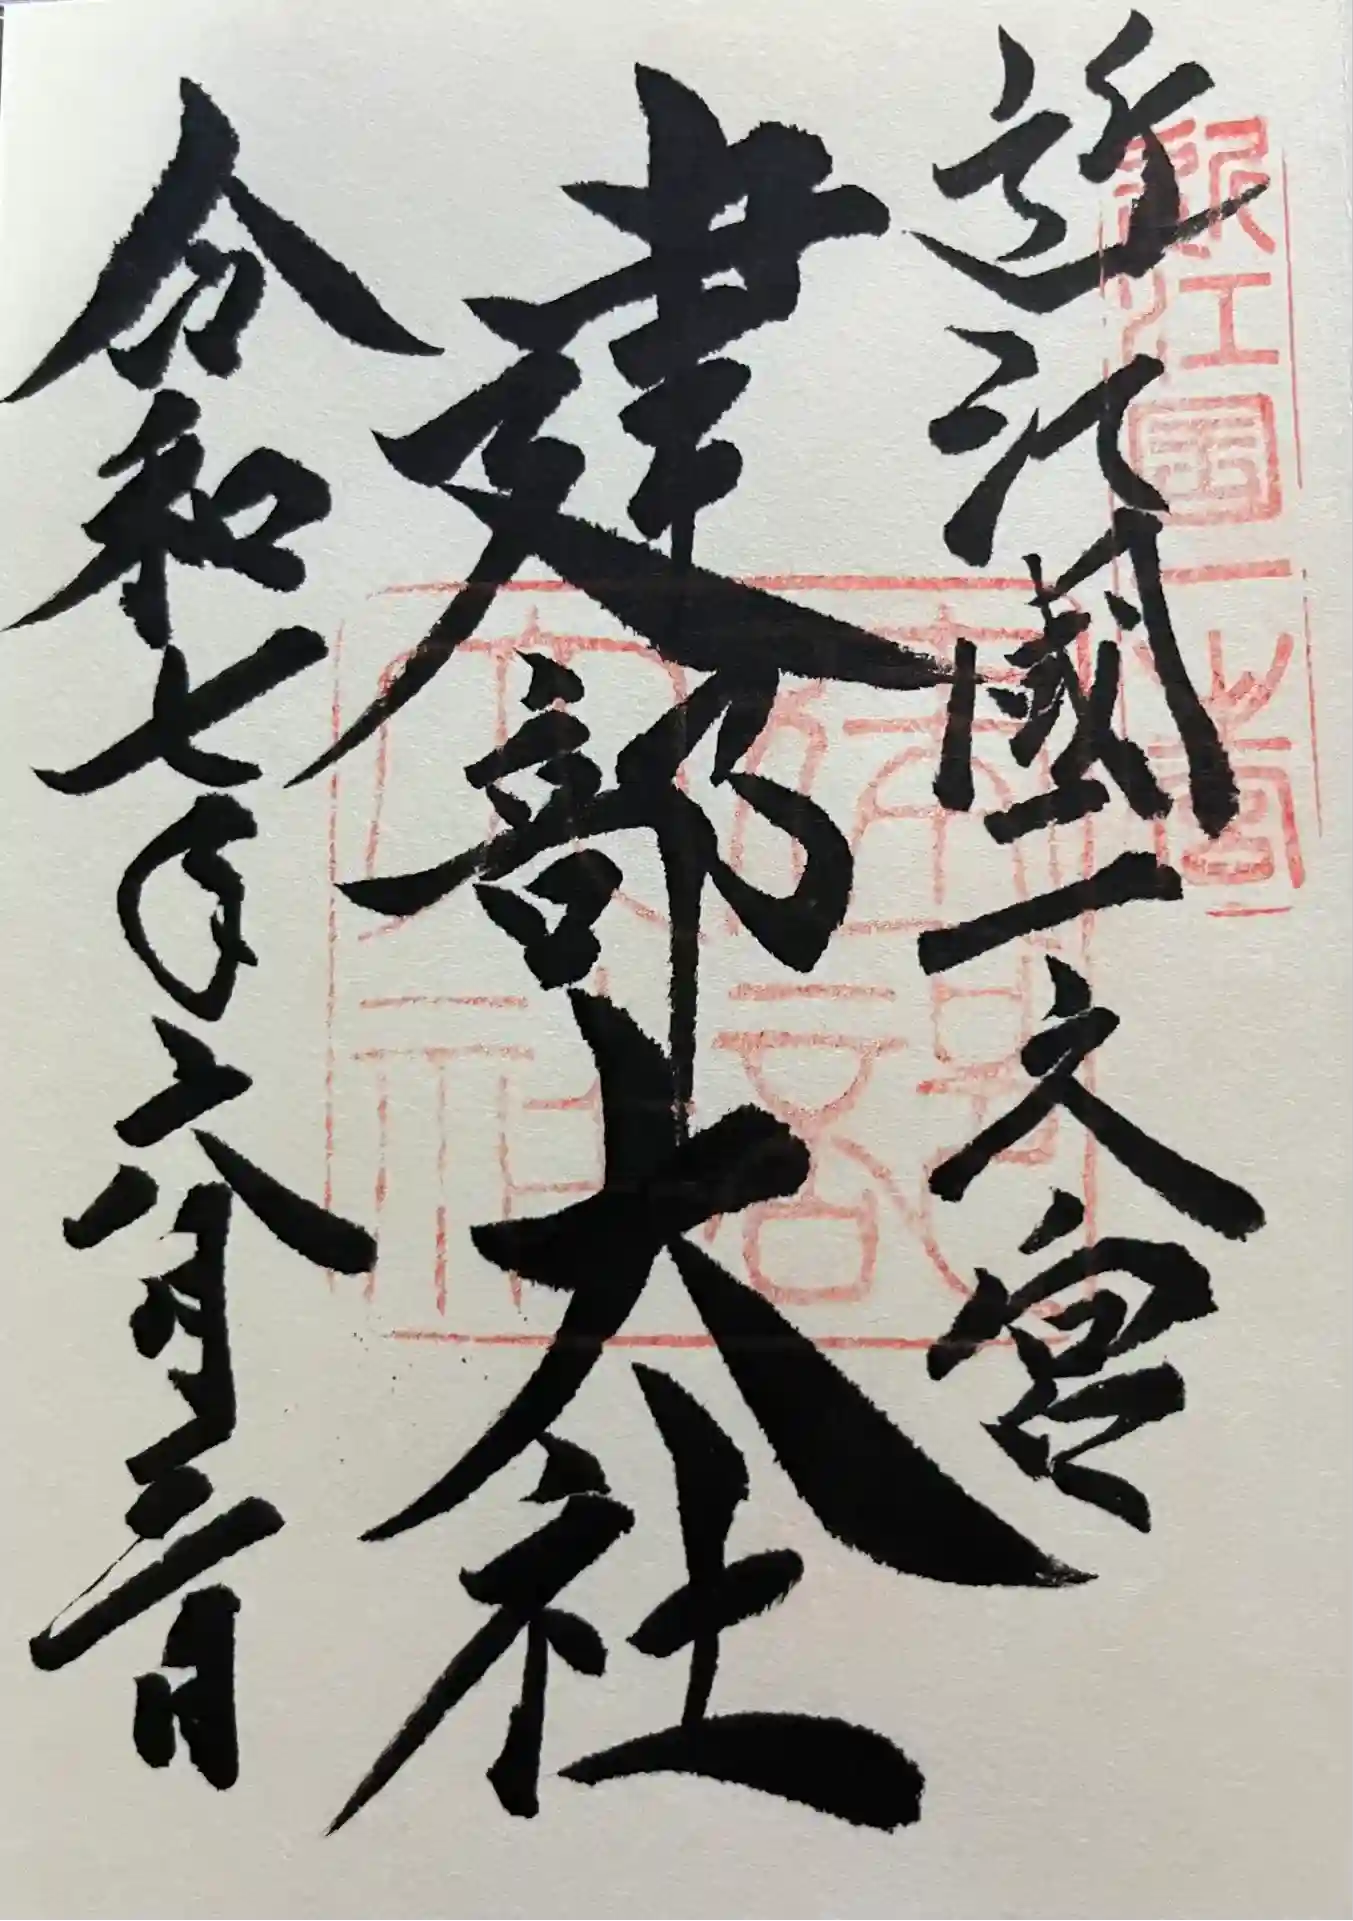 近江國一之宮
建部大社
令和七年六月三日
近江国一之宮
建部
大社